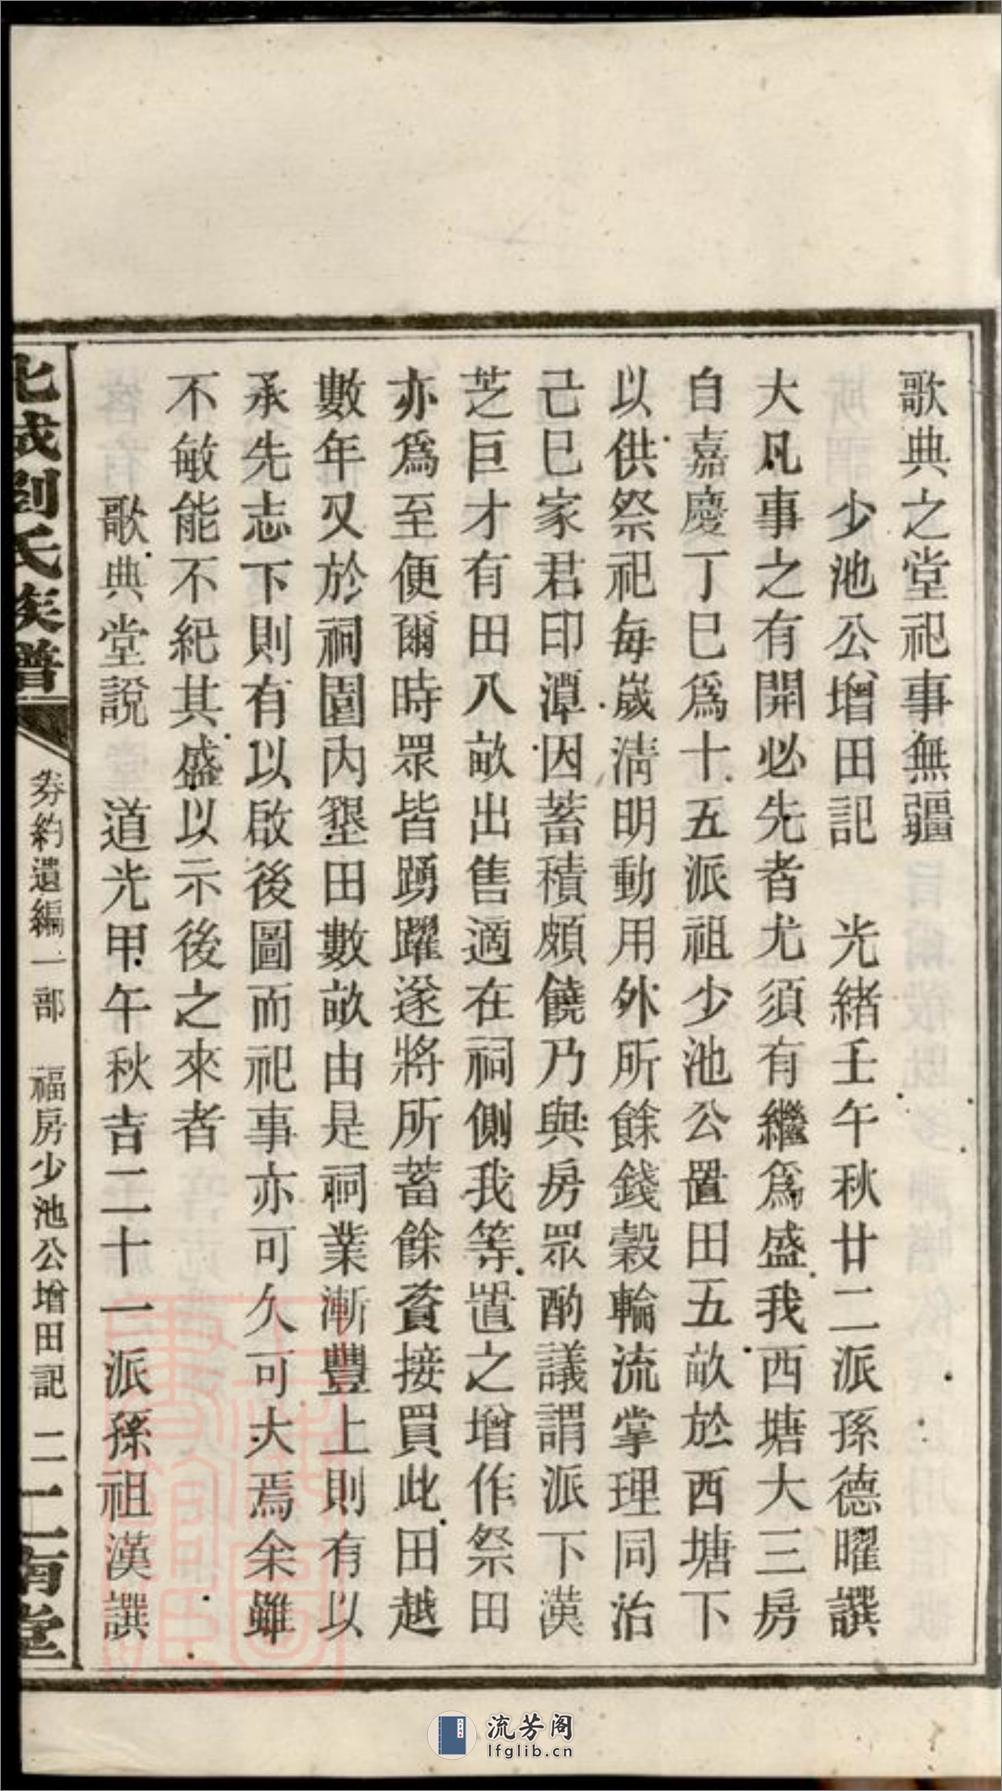 歌典之堂祀事無疆
少池公增田記 光緒壬午秋廿二派孫德曜譔
大凡事之有開必先者尤須有繼爲盛我西塘大三房
自嘉慶丁巳爲十五派祖少池公置田五畝於西塘下
以供祭祀每歲淸明動用外所餘錢穀輪流掌理同治
己巳家君印潭因蓄積頗饒乃與房眾酌議謂派下漢
芝巨才有田八畝出售適在祠側我等置之增作祭田
亦爲至便爾時眾皆踴躍遂將所蓄餘資接買此田越
數年又於祠園內墾田數畝由是祠業漸豐上則有以
承先志下則有以啟後圖而祀事亦可久可大焉余雖
不敏能不紀其盛以示後之來者
歌典堂說 道光甲午秋吉二十一派孫祖漢譔
北成劉氏族譜
券約遺編一部 福房少池公增田記 二
二南堂
流芳阁
lfglib.cn